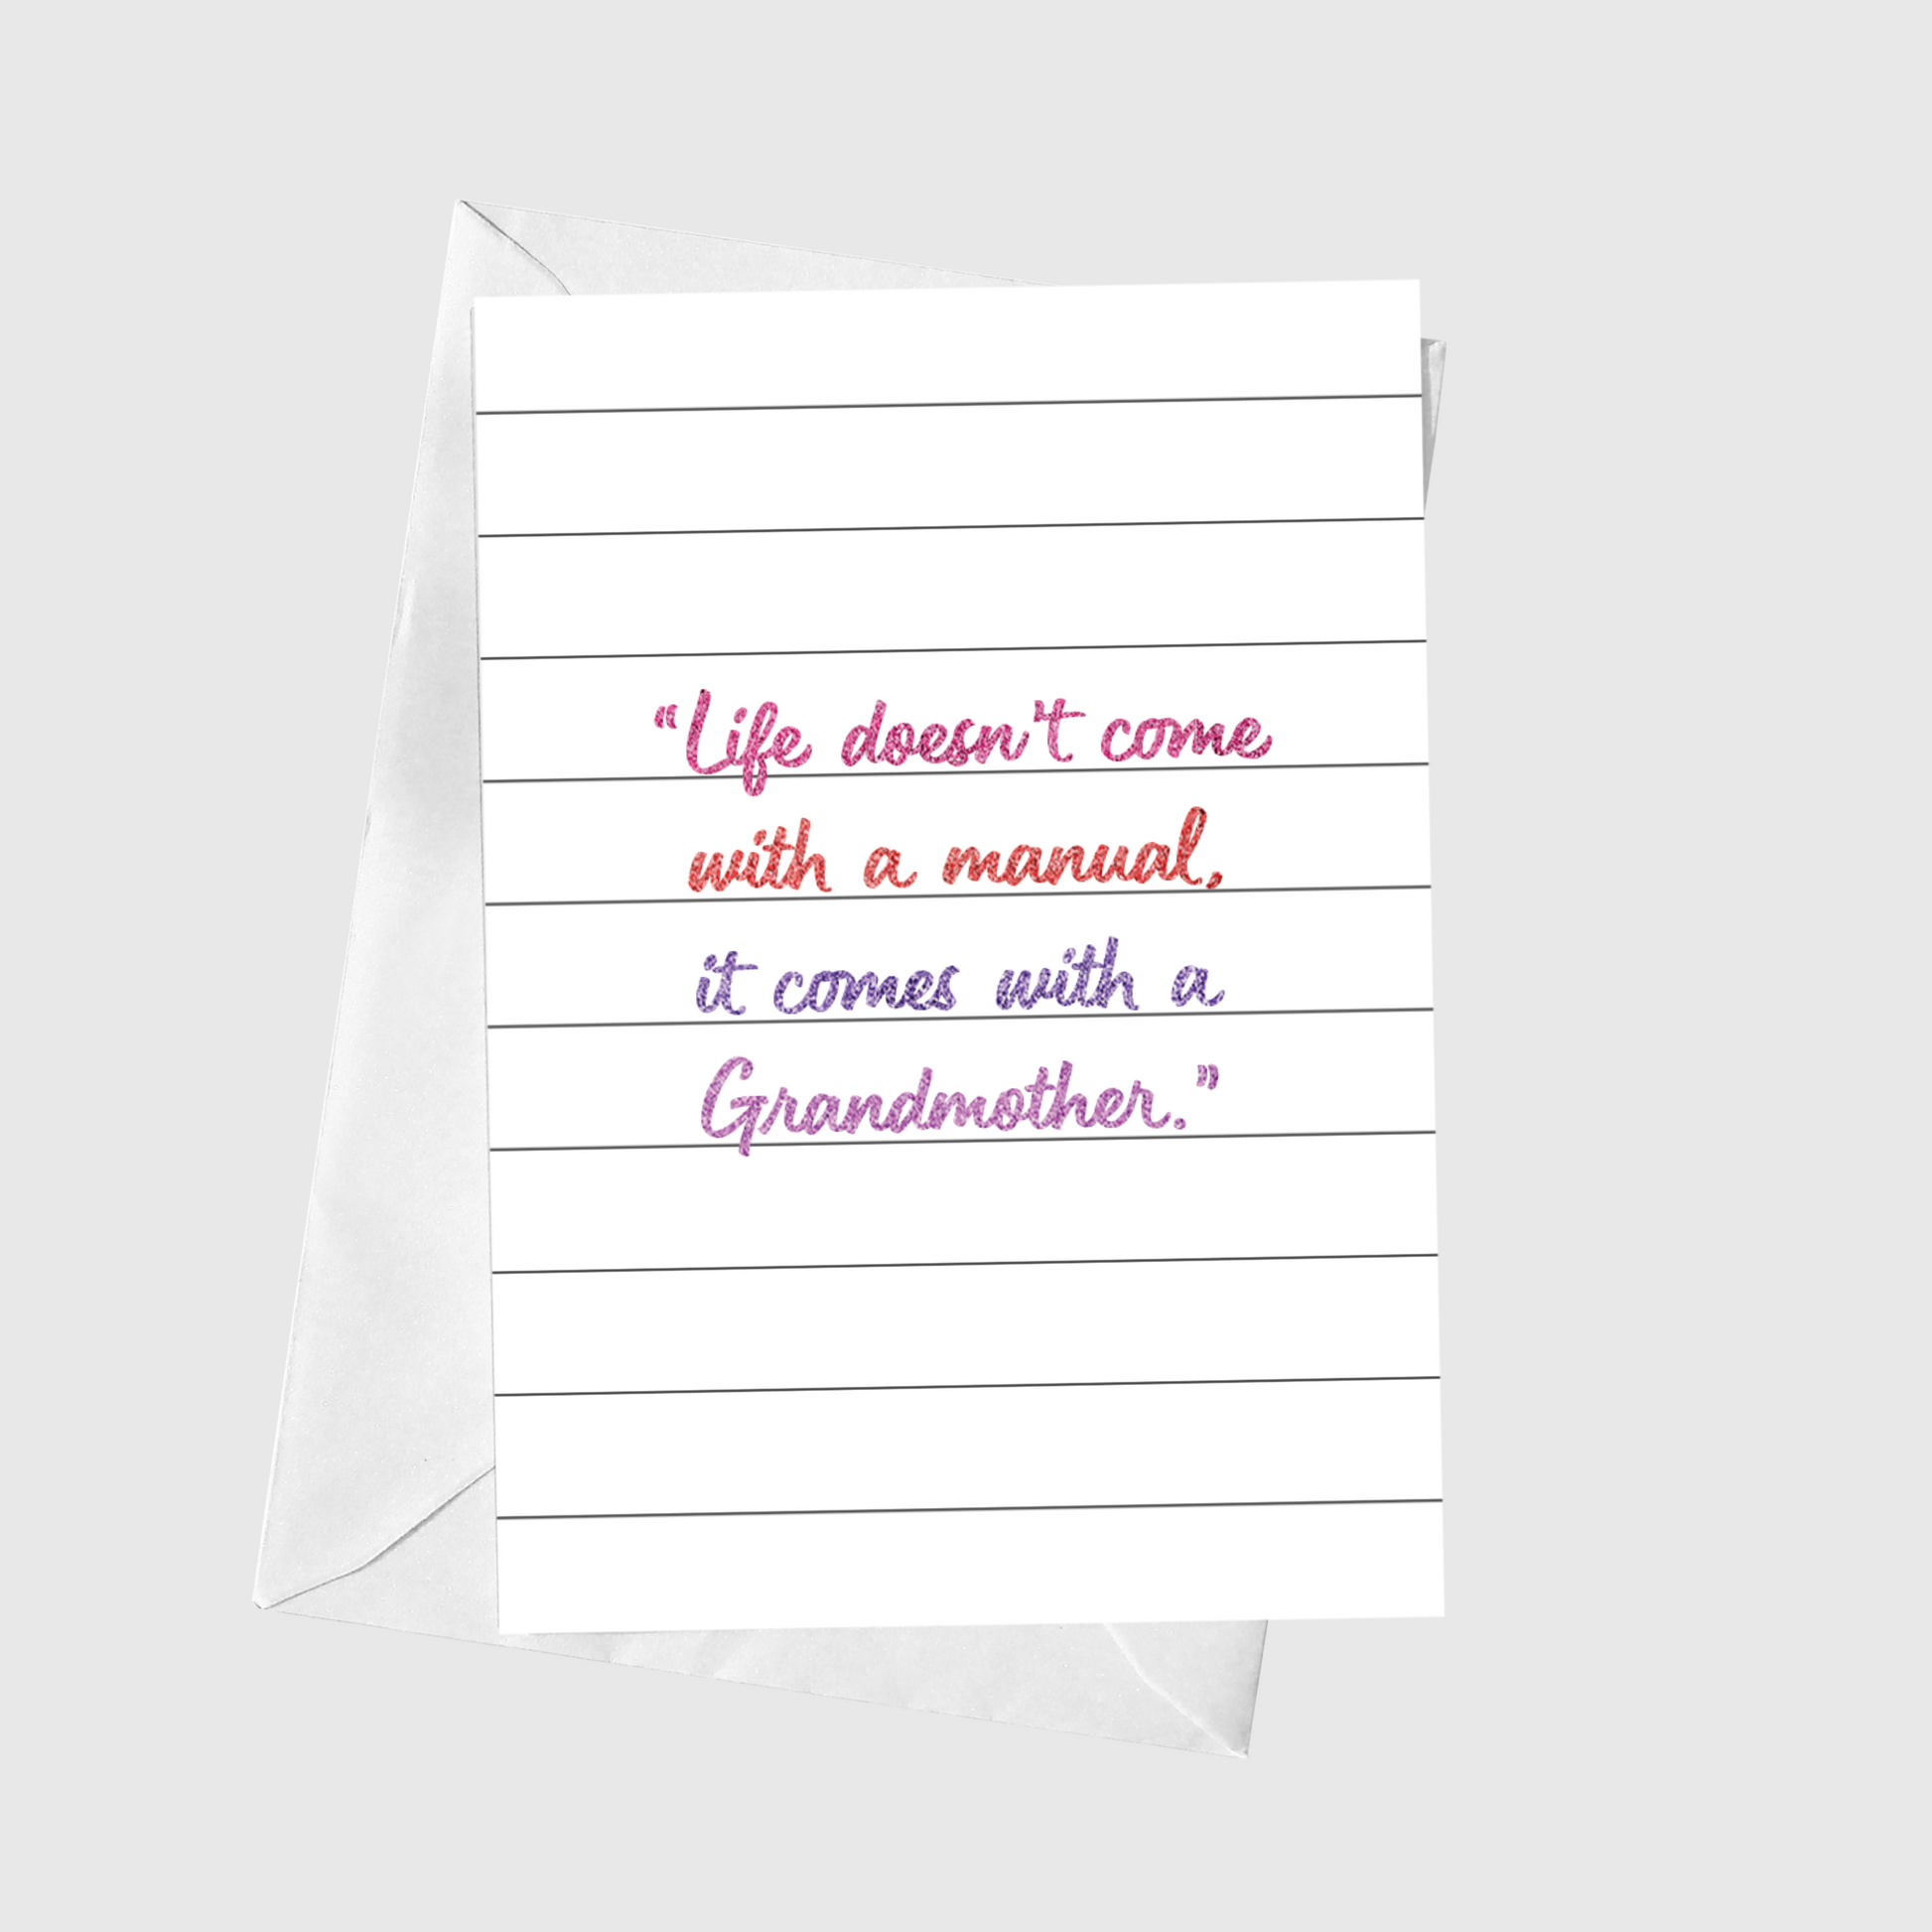 “Life doesn't come
with a manual,
it comes with a
Grandmother.”